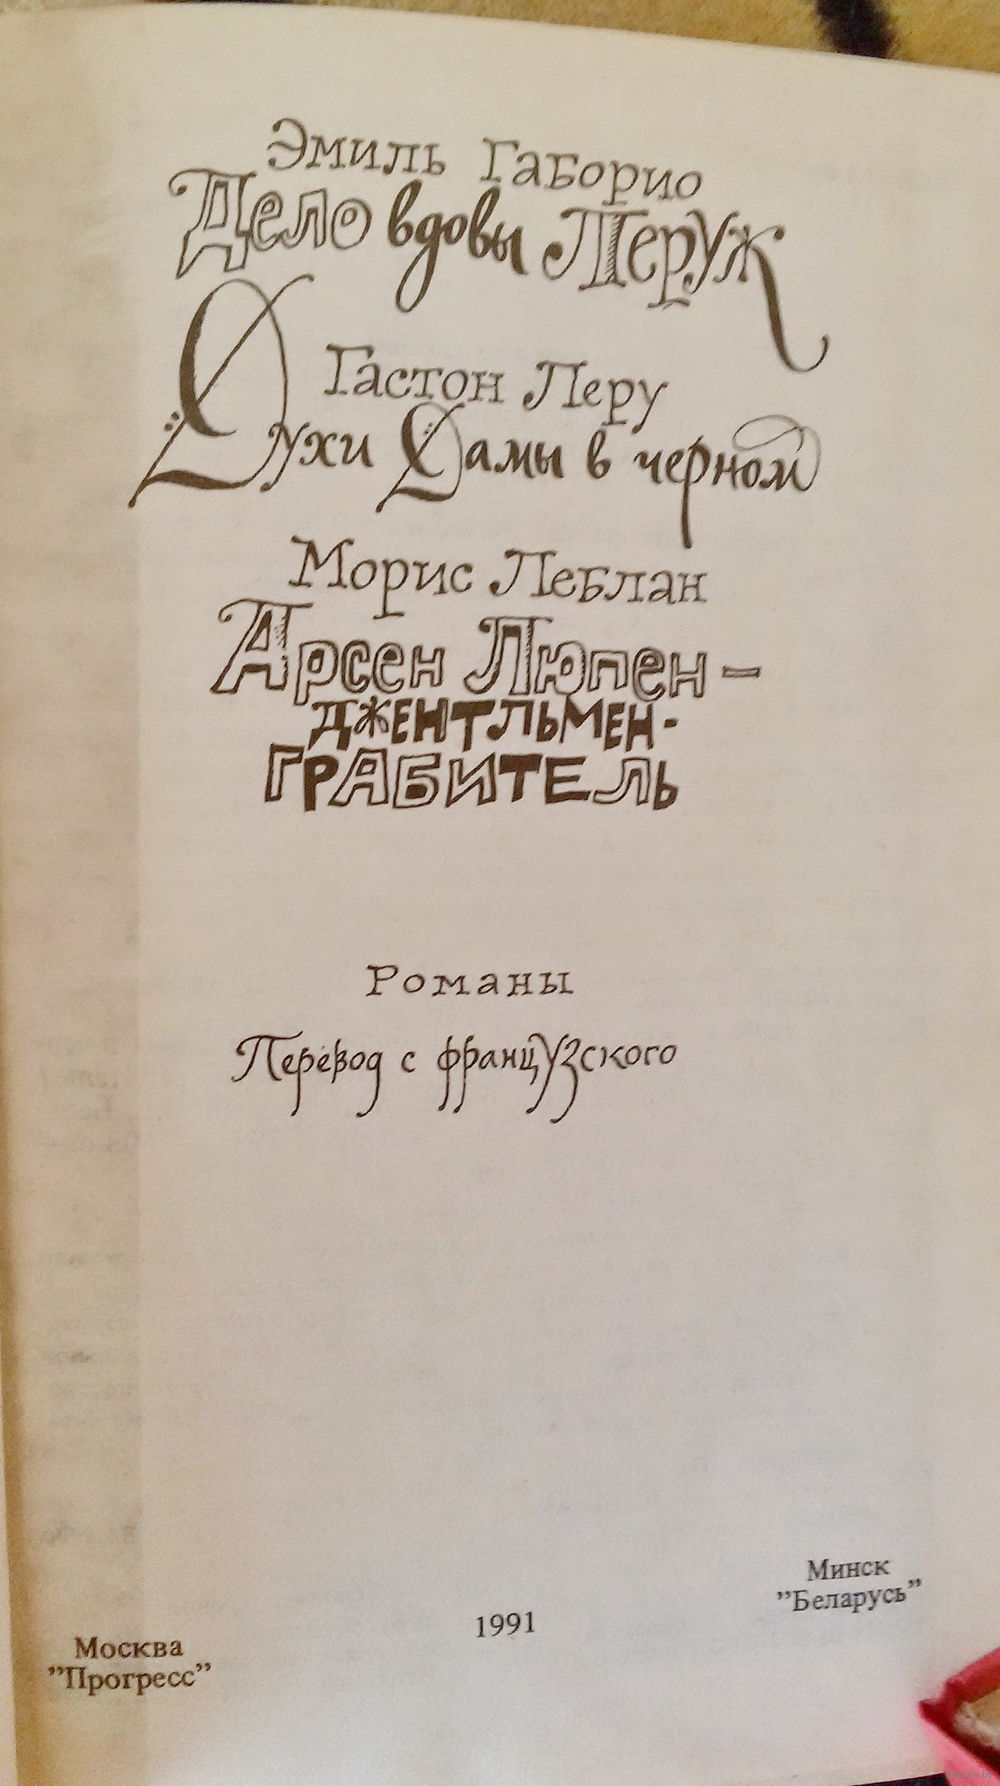 Эмиль Габорио
Дело вдовы Леруж
Гастон Леру
Духи Дамы в черном
Морис Леблан
Арсен Люпен –
ДЖЕНТЛЬМЕН-
ГРАБИТЕЛЬ
Романы
Перевод с французского
Минск
"Беларусь"
1991
Москва
"Прогресс"